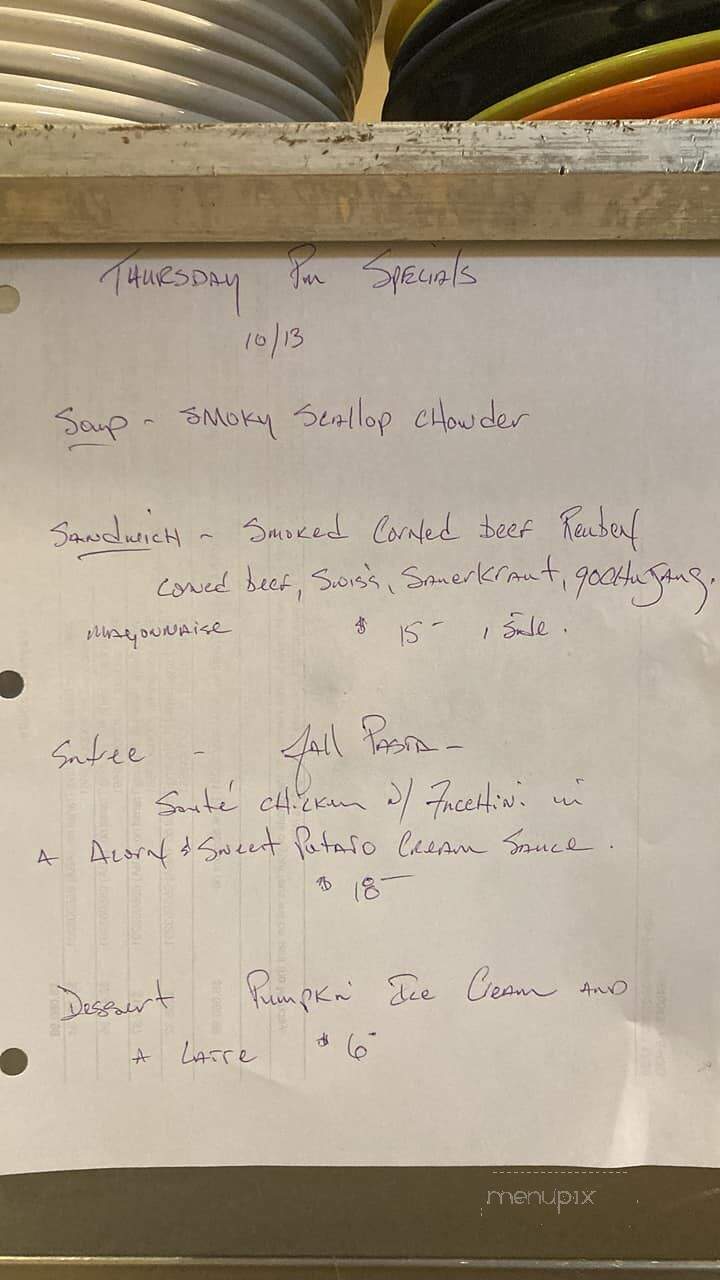 THURSDAY Pm SPECIAls
10/13
Soup - SMOKY SCAllop CHowder
SANDwicH - Smoked Corned beef Reuben
corned beef, Swiss, SauerKraut, gocHuJang.
MAYONNAise $ 15- , Side.
Entree - Fall PASTA -
Sauté CHicken W/ Zucchini in
A Acorn & Sweet Potato Cream Sauce.
$ 18-
Dessert Pumpkn Ice Cream AND
A Latte $ 6-
menupix